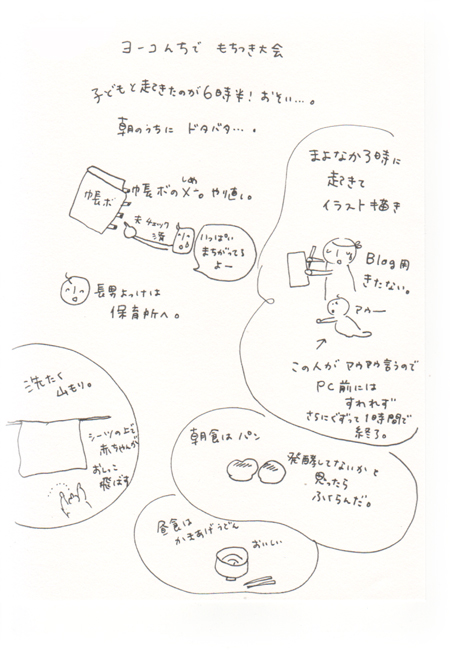 ヨーコんちで もちつき大会
子どもと起きたのが6時半！おそい…。
朝のうちに ドタバタ…。
帳ボ
帳ボの〆。やり直し。
しめ
夫チェック
済
いっぱい
まちがってる
よー
長男よっけは
保育所へ。
まよなか3時に
起きて
イラスト描き
Blog用
きたない。
アウー
この人がアウアウ言うので
PC前には
すわれず
さらにぐずって1時間で
終了。
洗たく
山もり。
シーツの上で
赤ちゃんが
おしっこ
飛ばす
朝食は パン
発酵してないかと
思ったら
ふくらんだ。
昼食は
かきあげうどん
おいしい